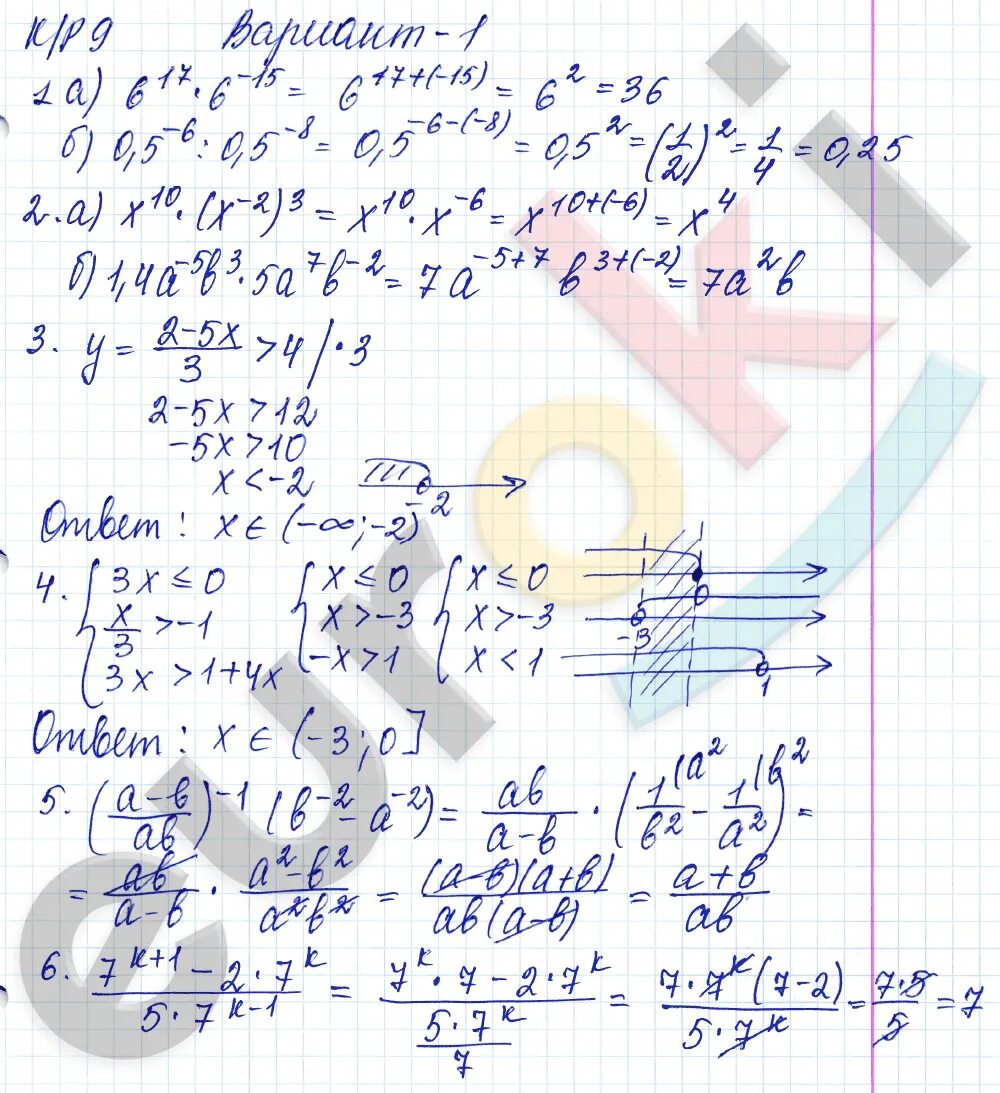 К/Р 9 Вариант-1
1 а) 6^17 · 6^-15 = 6^17+(-15) = 6^2 = 36
б) 0,5^-6 : 0,5^-8 = 0,5^-6-(-8) = 0,5^2 = (1/2)^2 = 1/4 = 0,25
2. а) x^10 · (x^-2)^3 = x^10 · x^-6 = x^10+(-6) = x^4
б) 1,4a^-5 b^3 · 5a^7 b^-2 = 7a^-5+7 b^3+(-2) = 7a^2 b
3. y = (2-5x)/3 > 4 / · 3
2-5x > 12
-5x > 10
x < -2
-2
Ответ: x ∈ (-∞; -2)
4. { 3x ≤ 0 { x ≤ 0 { x ≤ 0
x/3 > -1 x > -3 x > -3
3x > 1+4x -x > 1 x < 1
0
-3
1
Ответ: x ∈ (-3; 0]
5. ((a-b)/ab)^-1 (b^-2 - a^-2) = ab/(a-b) · (1(a^2/b^2 - 1(b^2/a^2) =
= ab/(a-b) · (a^2-b^2)/(a^2b^2) = (a-b)(a+b)/(ab(a-b)) = (a+b)/ab
6. (7^к+1 - 2·7^к)/(5·7^к-1) = (7^к · 7 - 2·7^к)/(5·7^к/7) = (7·7^к(7-2))/(5·7^к) = 7·5/5 = 7
euroki